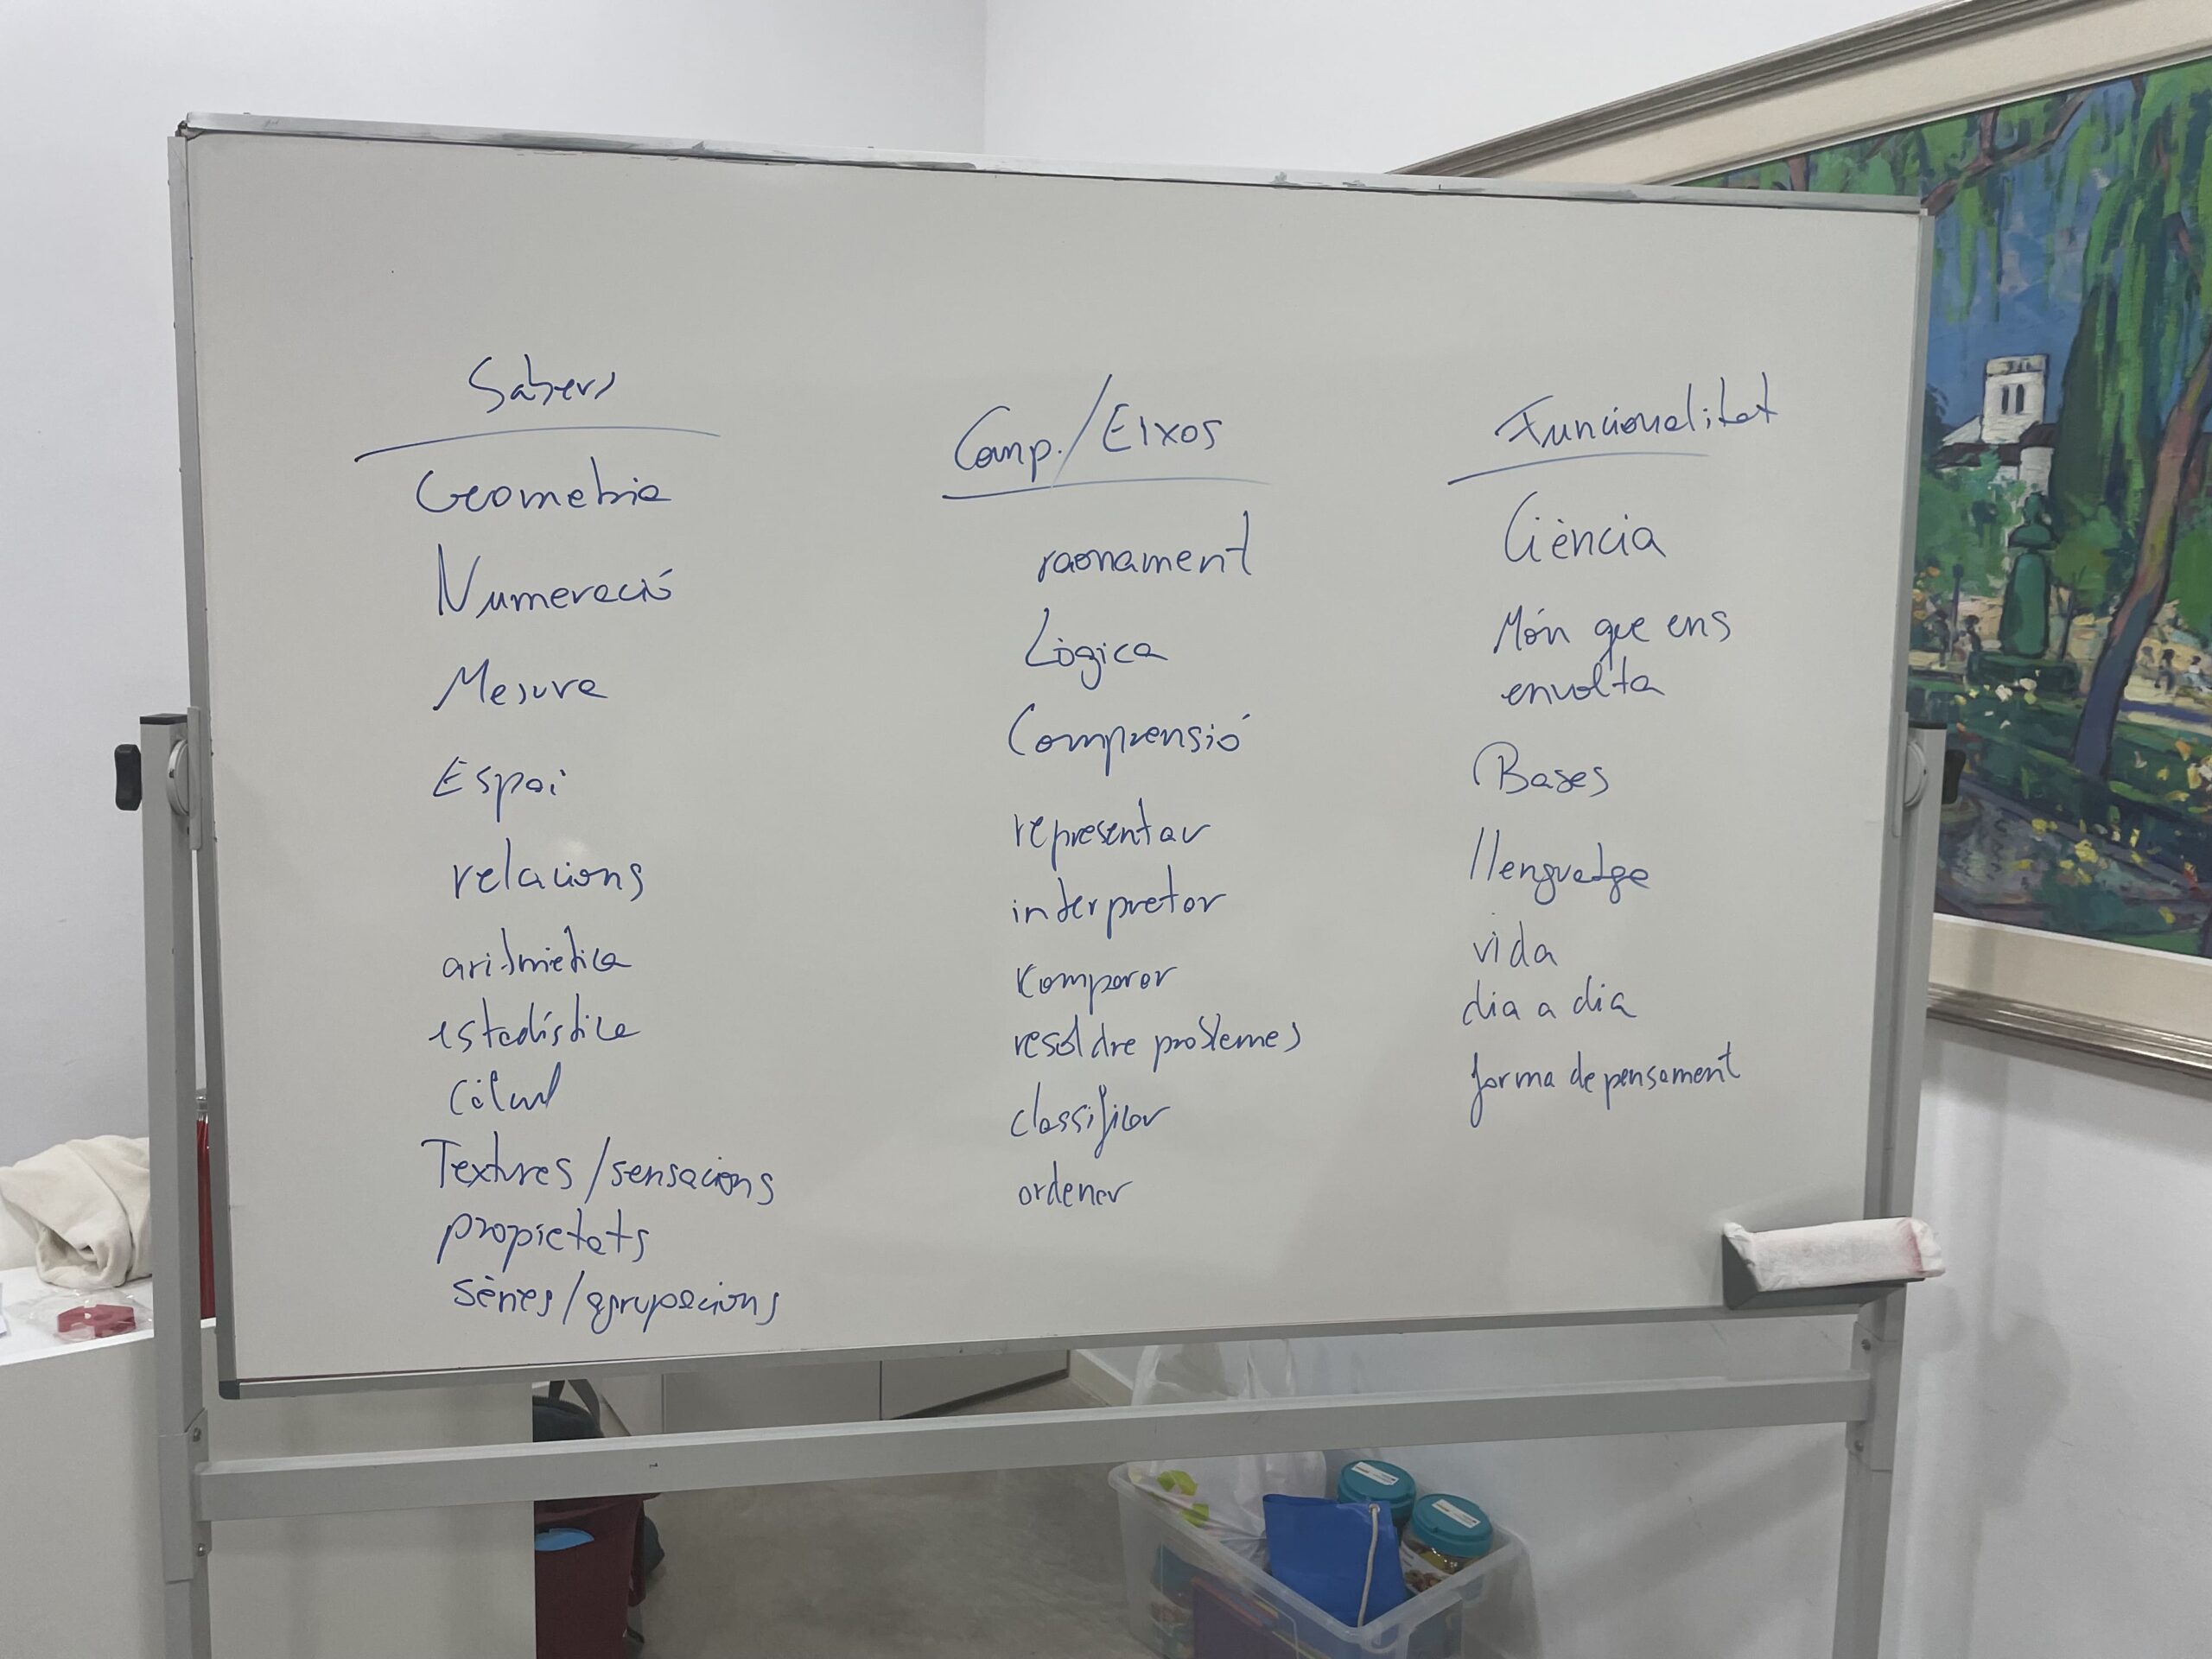 Sabers
Geometria
Numeració
Mesura
Espai
relacions
aritmètica
estadística
Càlcul
Textures/sensacions
propietats
sèries/agrupacions
Comp./Eixos
raonament
Lògica
Comprensió
representar
interpretar
Comparar
resoldre problemes
classificar
ordenar
Funcionalitat
Ciència
Món que ens
envolta
Bases
llenguatge
vida
dia a dia
forma de pensament